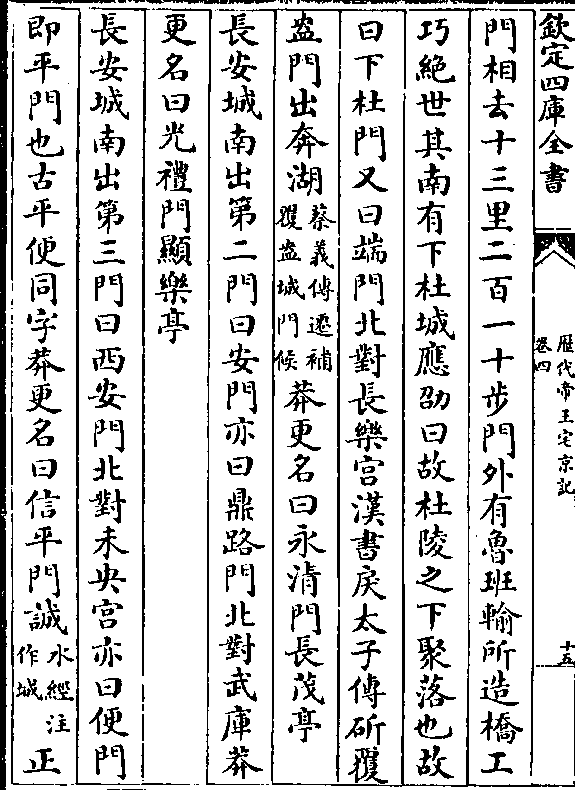 欽定四庫全書
歷代帝王宅京記
卷四
十五
門相去十三里二百一十步門外有魯班輸所造橋工
巧絶世其南有下杜城應劭曰故杜陵之下聚落也故
曰下杜門又曰端門北對長樂宫漢書戾太子傳斫覆
盎門出奔湖蔡義傳遷補覆盎城門候莽更名曰永清門長茂亭
長安城南出第二門曰安門亦曰鼎路門北對武庫莽
更名曰光禮門顯樂亭
長安城南出第三門曰西安門北對未央宫亦曰便門
即平門也古平便同字莽更名曰信平門誠水經注作城正